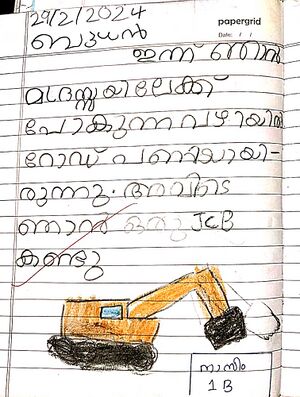 29/2/2024
papergrid
Date: / /
ബുധൻ
ഇന്ന് ഞാൻ
മദ്രസ്സയിലേക്ക്
പോകുന്ന വഴിയിൽ
റോഡ് പണിയായി-
രുന്നു. അവിടെ
ഞാൻ ഒരു JCB
കണ്ടു
1 B